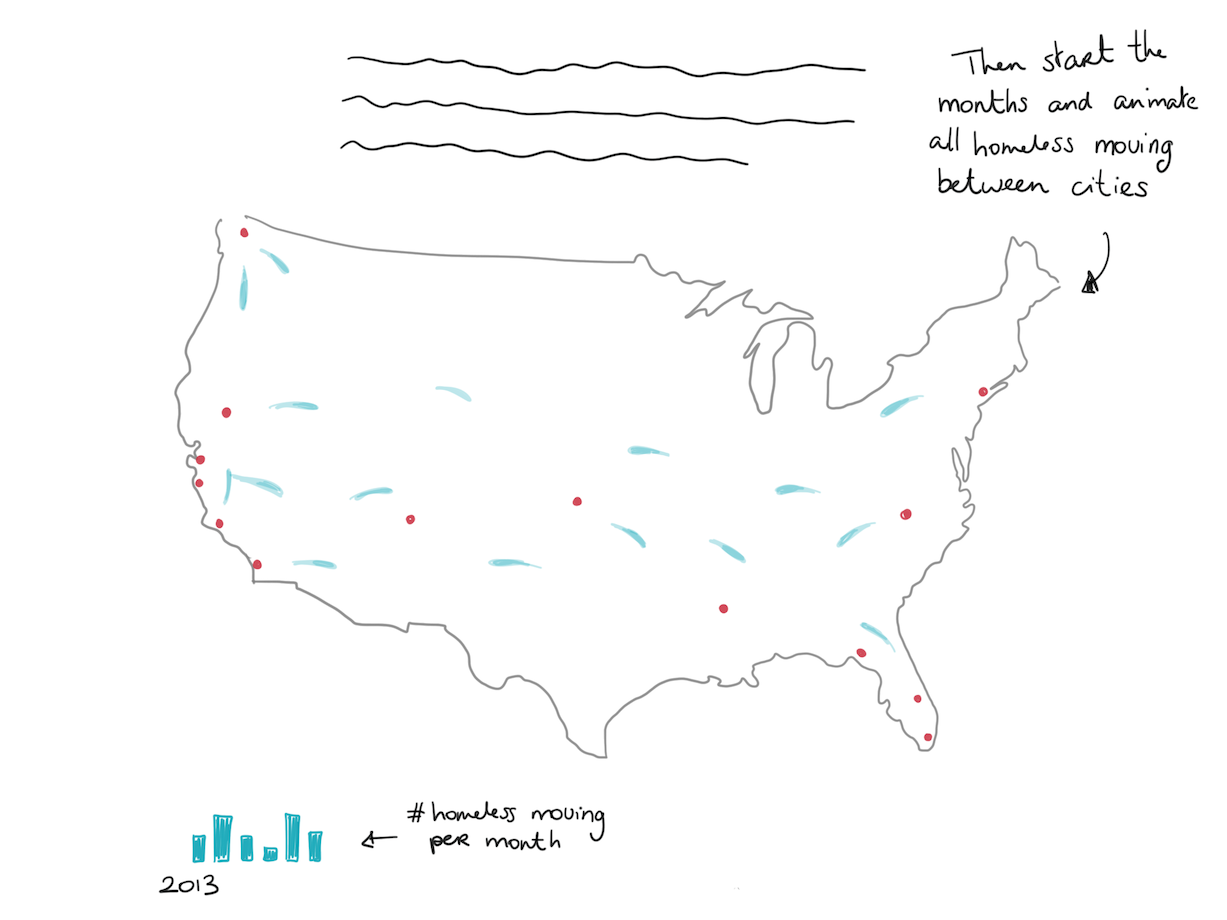 Then start the
months and animate
all homeless moving
between cities
# homeless moving
per month
2013